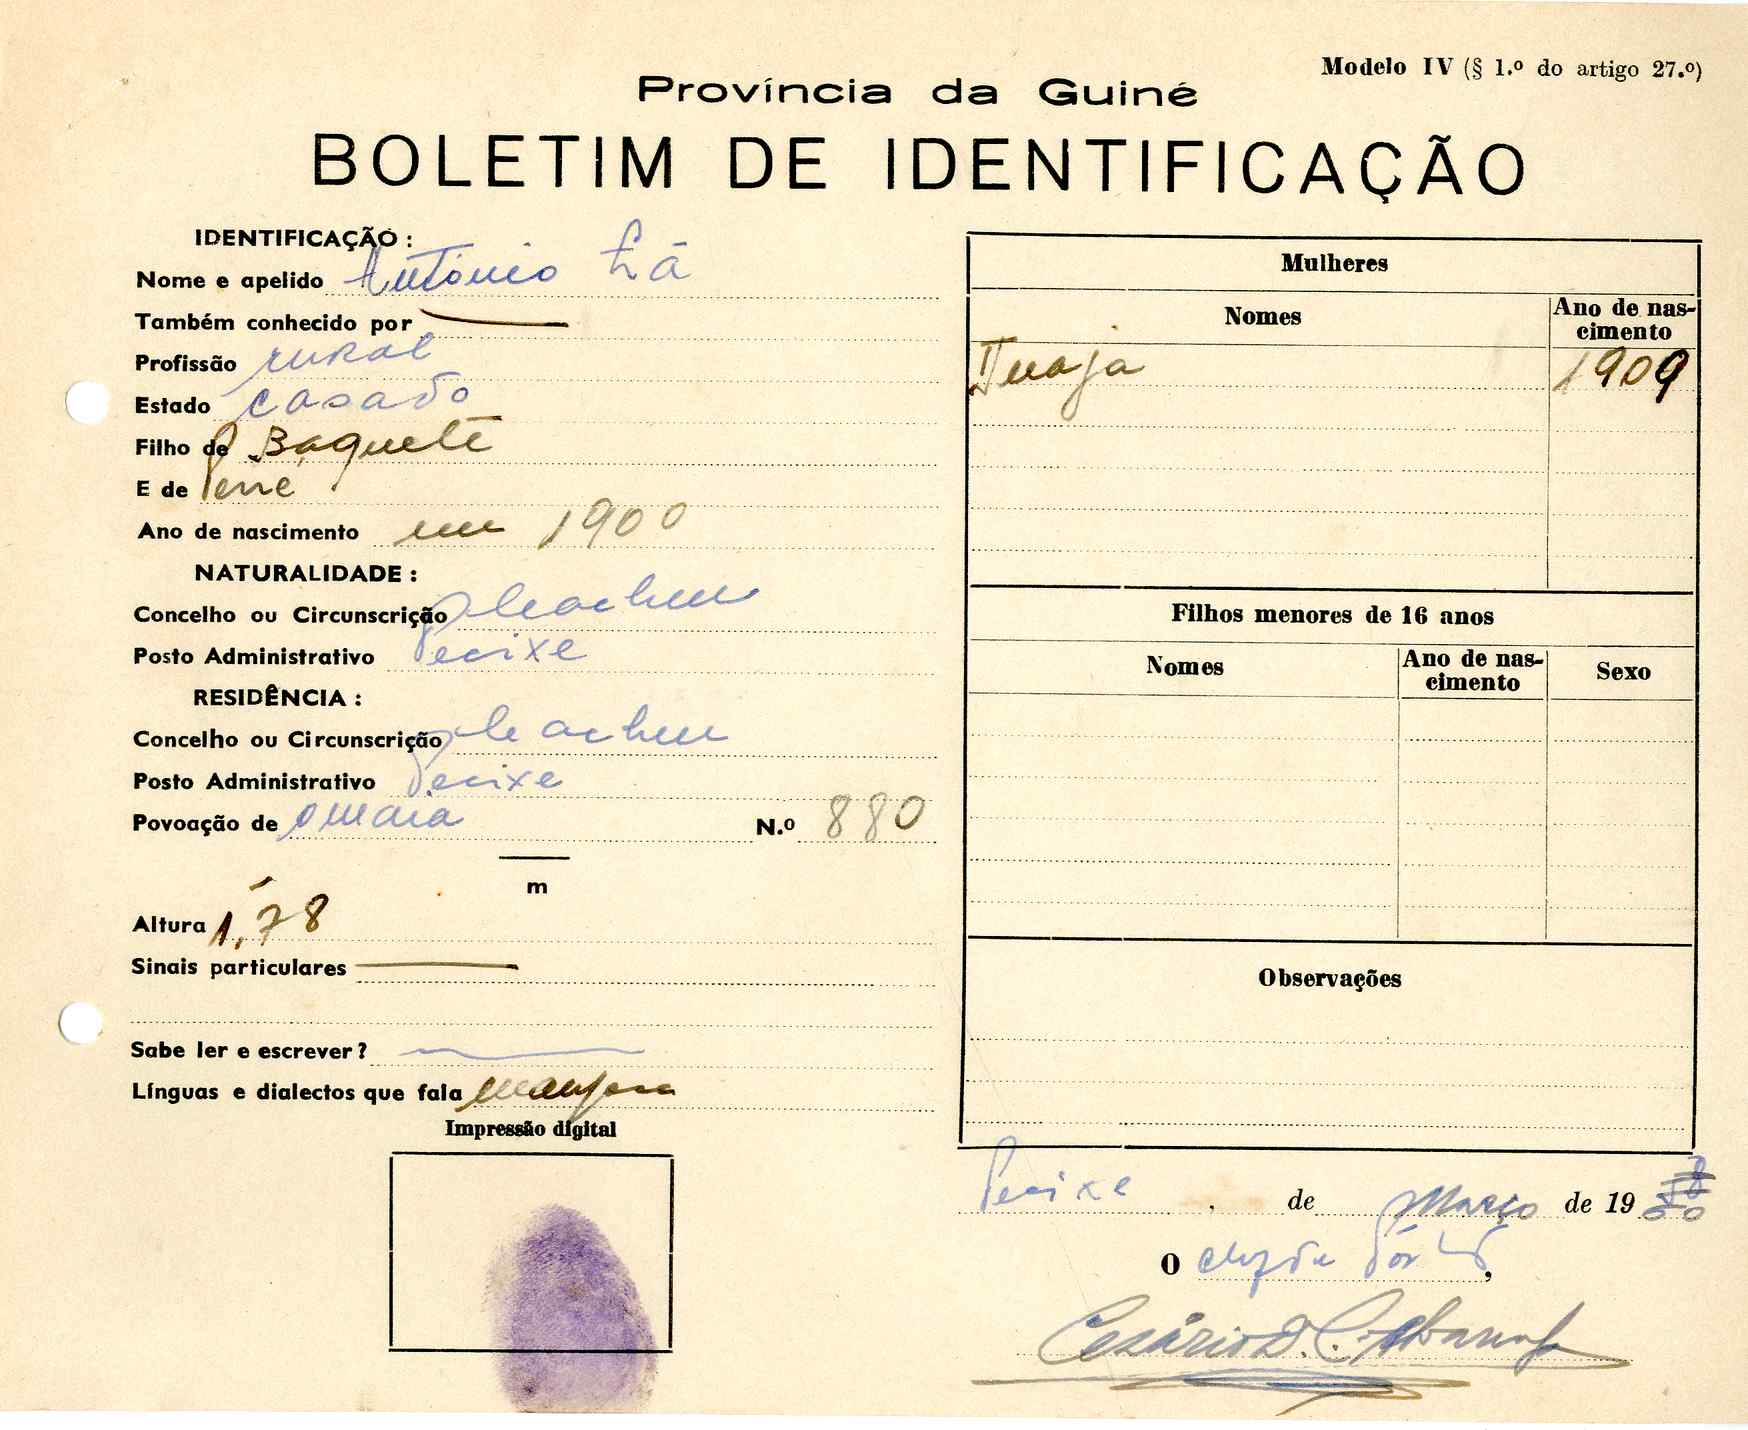 Modelo IV (§ 1.º do artigo 27.º)
Província da Guiné
BOLETIM DE IDENTIFICAÇÃO
IDENTIFICAÇÃO :
Nome e apelido António Lá
Também conhecido por
Profissão rural
Estado casado
Filho de Baquete
E de
Ano de nascimento em 1900
NATURALIDADE :
Concelho ou Circunscrição
Posto Administrativo Pecixe
RESIDÊNCIA :
Concelho ou Circunscrição
Posto Administrativo Pecixe
Povoação de N.º 880
m
Altura 1,78
Sinais particulares
Sabe ler e escrever ?
Línguas e dialectos que fala
Impressão digital
Mulheres
Nomes
Ano de nas-
cimento
1909
Filhos menores de 16 anos
Nomes
Ano de nas-
cimento
Sexo
Observações
Pecixe de Março de 19
O
Cesário D. C.